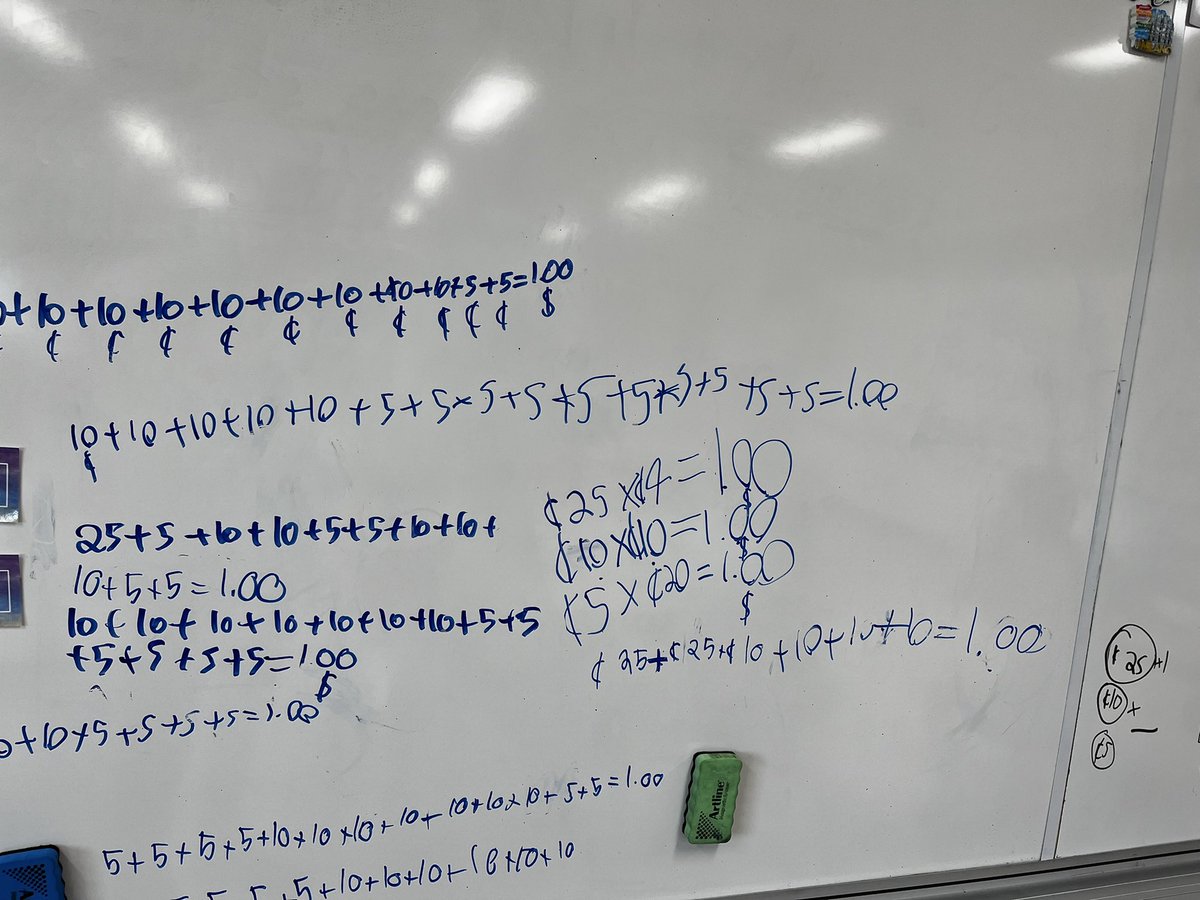 +10+10+10+10+10+10+10+10+5+5=1.00
¢ ¢ ¢ ¢ ¢ ¢ ¢ ¢ ¢ ¢ $
10+10+10+10+10+5+5×5+5+5+5+5+5+5+5=1.00
¢
25+5+10+10+5+5+10+10+
10+5+5=1.00
10+10+10+10+10+10+10+5+5
+5+5+5+5=1.00
$
+10+5+5+5+5=1.00
¢25×¢4=1.00
$
¢10×¢10=1.00
$
¢5×¢20=1.00
$
¢25+¢25+¢10+10+10+10+10=1.00
5+5+5+5+10+10+10+10+10+10+10+5+5=1.00
5+10+10+10+10+10+10
Artline
¢25+1
¢10+
¢5 —